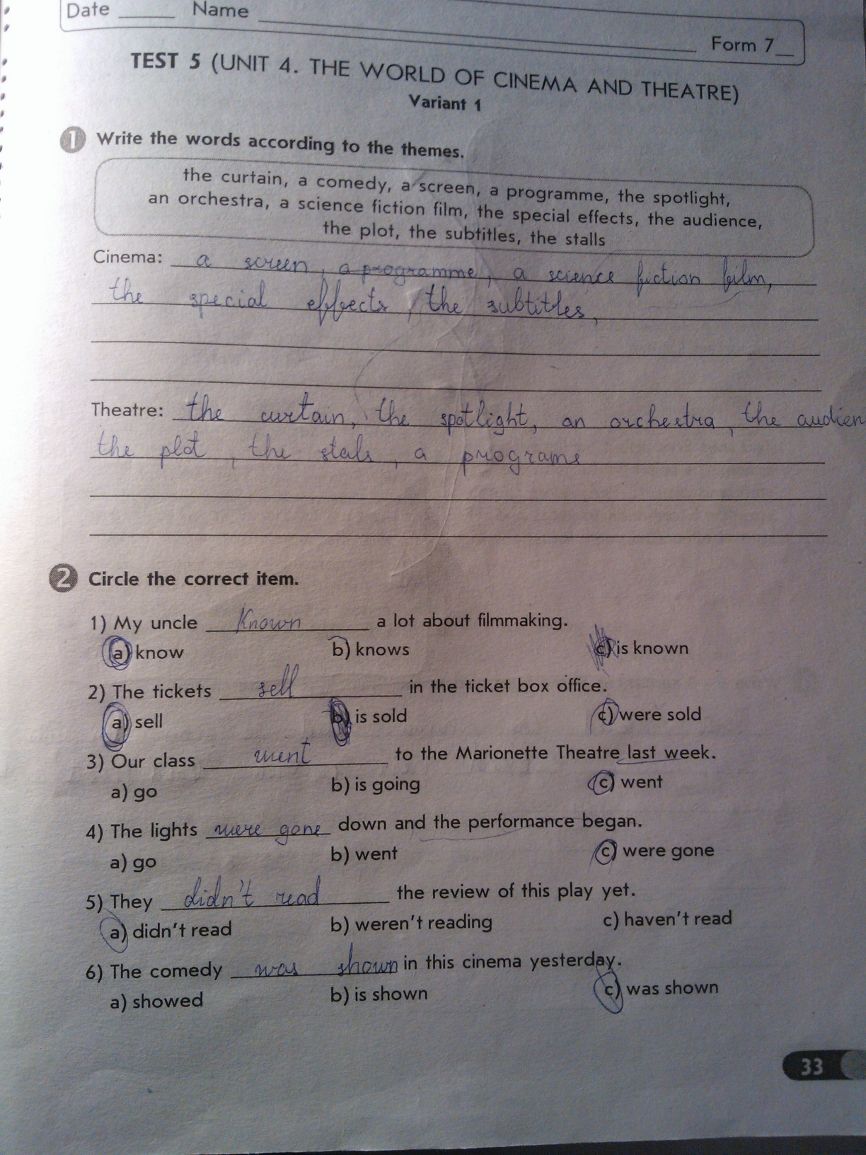 Date _____ Name _____
Form 7__
TEST 5 (UNIT 4. THE WORLD OF CINEMA AND THEATRE)
Variant 1
1 Write the words according to the themes.
the curtain, a comedy, a screen, a programme, the spotlight,
an orchestra, a science fiction film, the special effects, the audience,
the plot, the subtitles, the stalls
Cinema: a screen, a programme, a science fiction film,
the special effects, the subtitles,
Theatre: the curtain, the spotlight, an orchestra, the audien
the plot, the stals, a programe
2 Circle the correct item.
1) My uncle Known a lot about filmmaking.
a) know b) knows c) is known
2) The tickets sell in the ticket box office.
a) sell b) is sold c) were sold
3) Our class went to the Marionette Theatre last week.
a) go b) is going c) went
4) The lights were gone down and the performance began.
a) go b) went c) were gone
5) They didn't read the review of this play yet.
a) didn't read b) weren't reading c) haven't read
6) The comedy was shown in this cinema yesterday.
a) showed b) is shown c) was shown
33